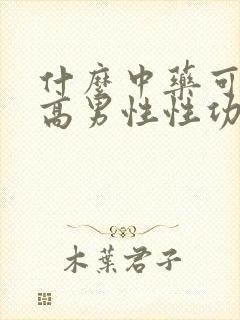 什麼中藥可
高男性性功
木葉君子